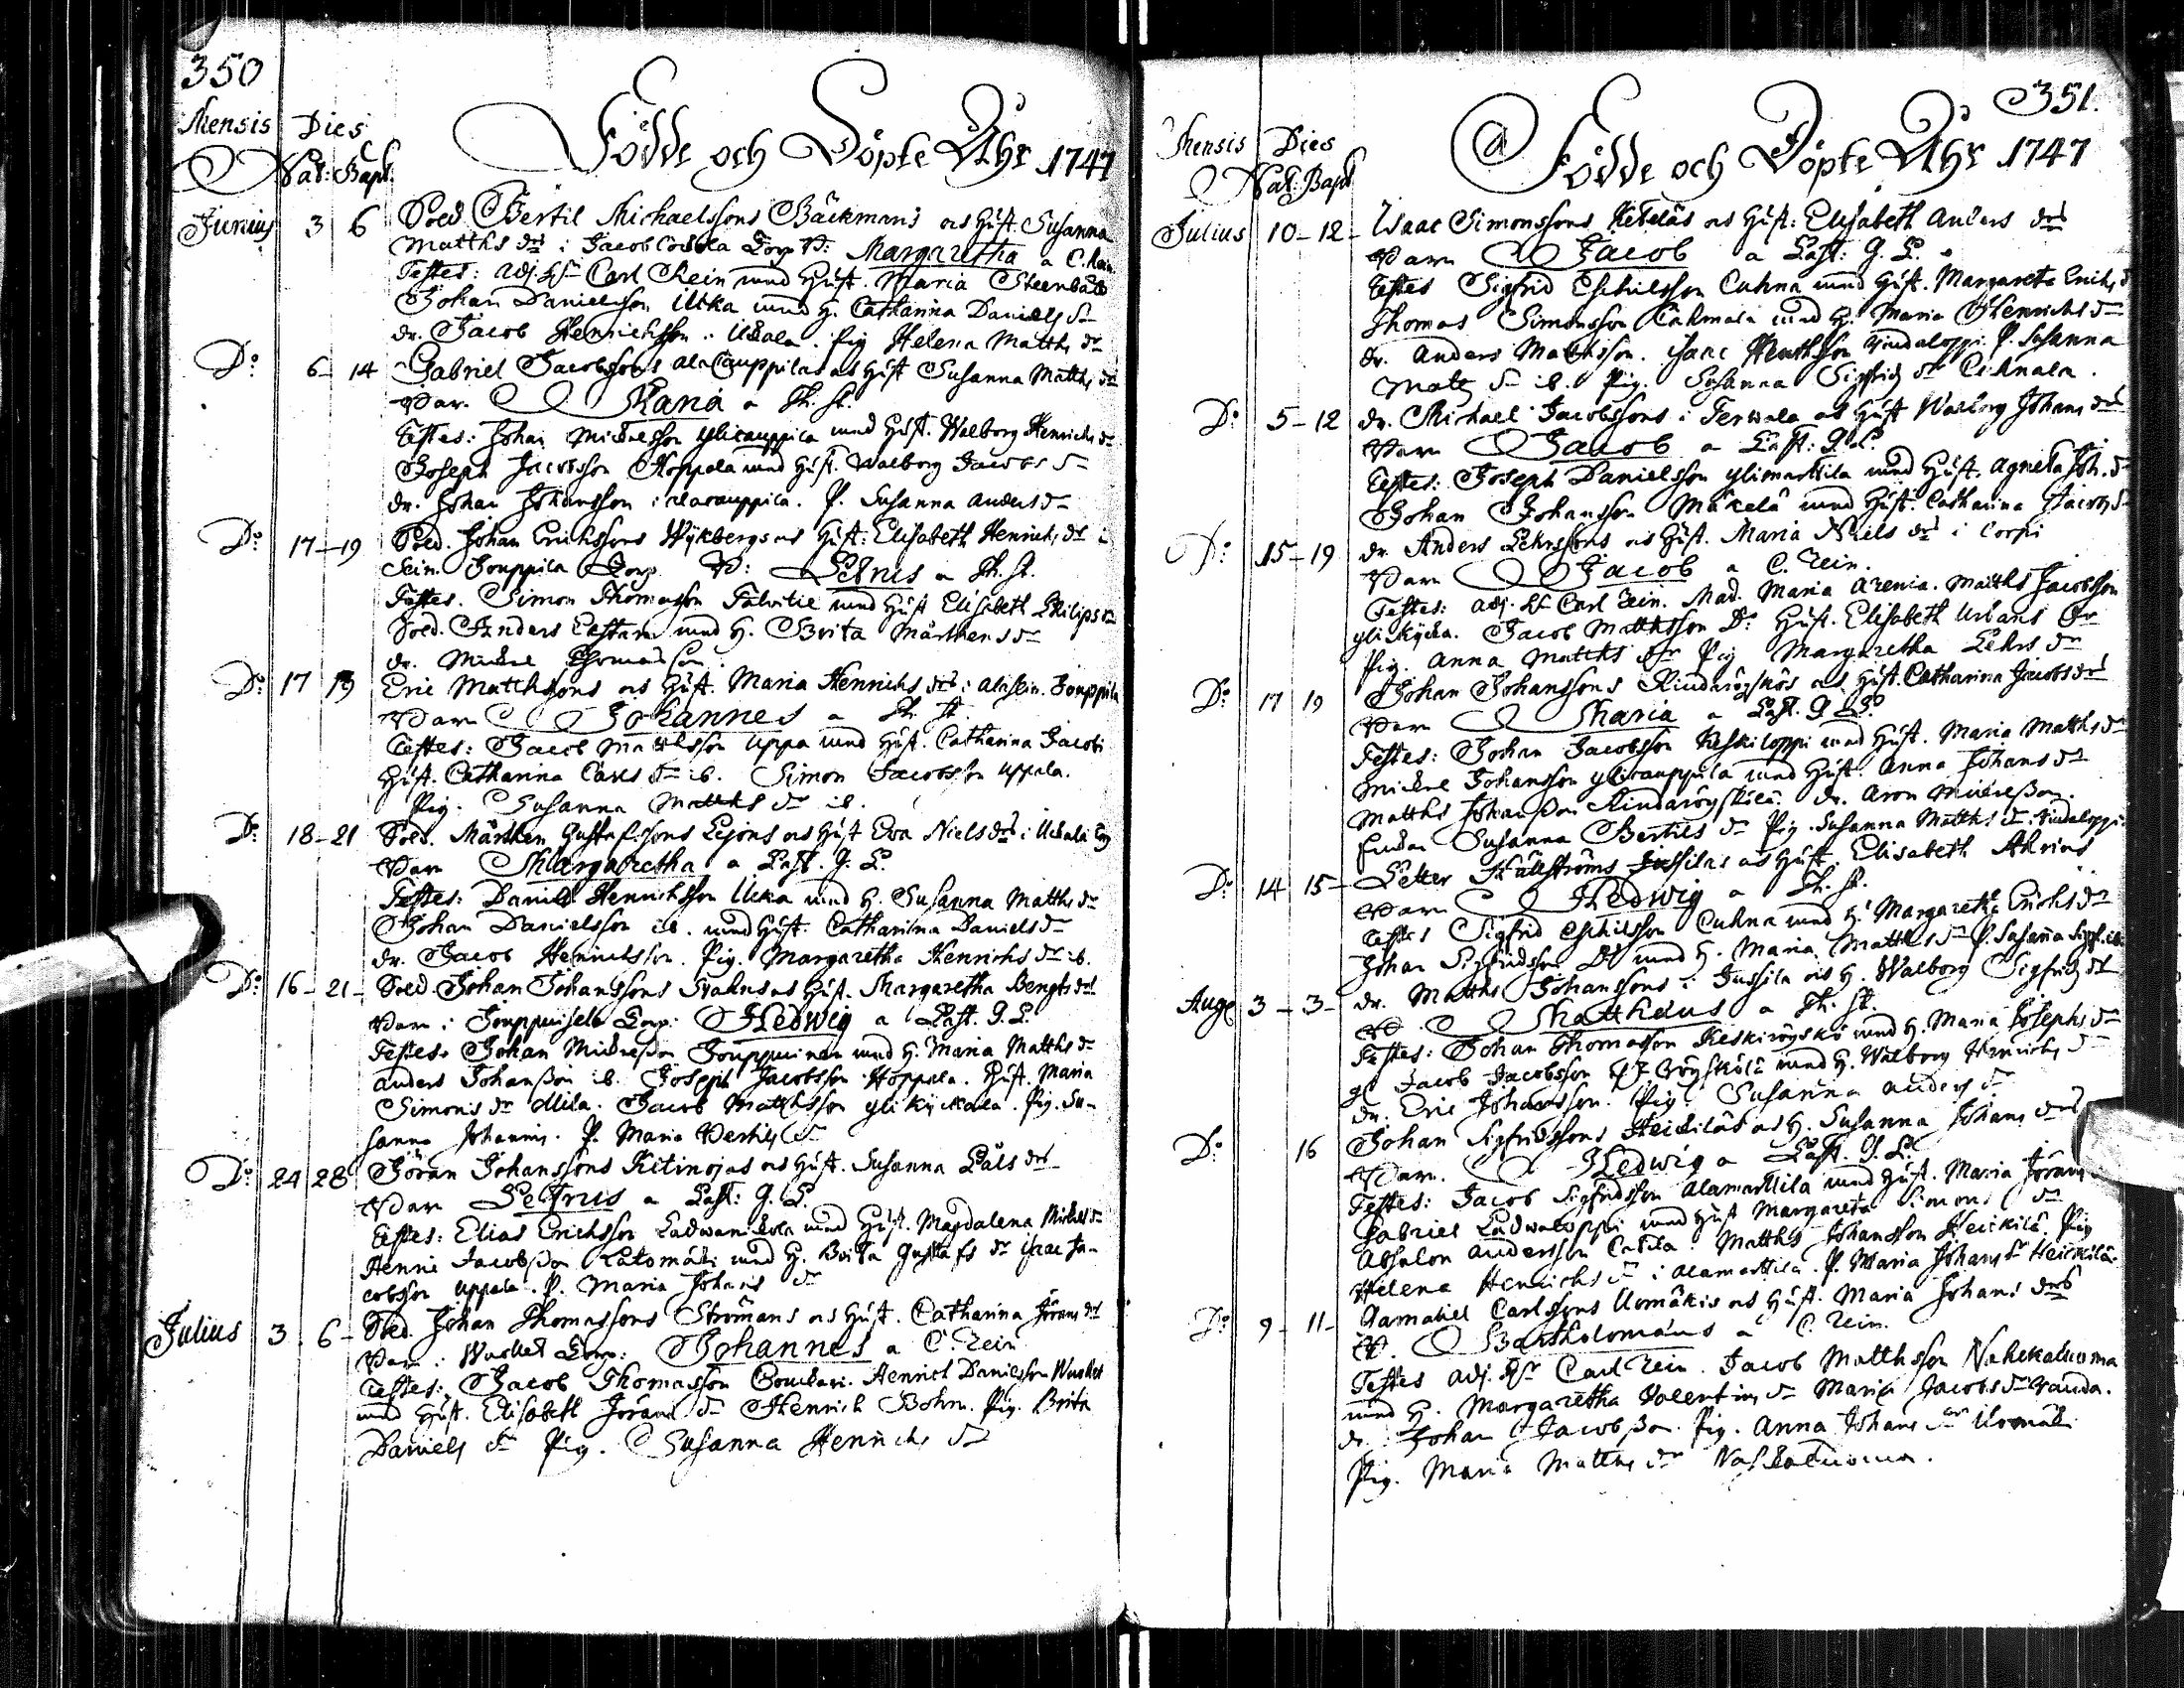 350
Mensis Dies
Nat: Bapt:
Födde och Döpte Åhr 1747
Junius 3 6 Sold Bertil Michaelssons Bäckmans och Hust. Susanna
Matths drs i Jacob Torp B: Margaretha a C. Rein
Testes: Adj. Hr Carl Rein med Hust. Maria Steenbäck
Johan Danielsson Ucka med H. Catharina Daniels dr
dr. Jacob Henrichsson Uckala. Pig Helena Matths dr
Do: 6 - 14 Gabriel Jacobssons Alacauppilas och Hust Susanna Matths drs
Barn a Th. St.
Testes: Johan Mickelsson Ylicauppila med Hust. Walborg Henrichs dr
Joseph Jacobsson Hoppala med Hust. Walborg Jacobs dr
dr. Johan Johansson i Alacauppila. P. Susanna Anders dr
Do: 17 - 19 Sold. Johan Erichssons Wykbergs och Hust: Elisabeth Henrichs drs i
Sein. Jouppila Torp B: Petrus a Th. St.
Testes. Simon Thomasson Talvitie med Hust Elisabeth Philips dr
Sold. Anders Castam med H. Brita Mårthens dr
dr. Mickel Thomasson.
Do: 17 19 Eric Matthssons och Hust. Maria Henrichs drs i Alasein. Jouppila
Barn Johannes a Th. St.
Testes: Jacob Matthsson Uppa med Hust. Catharina Jacobs
Hust. Catharina Carls dr ib. Simon Jacobsson Uppala.
Pig. Susanna Matths dr ib.
Do: 18 - 21 Sold. Mårthen Gustafssons Lejons och Hust Eva Niels drs i Uckala Torp
Barn Margaretha a Past. G. P.
Testes: Daniel Henrichsson Ucka med H. Susanna Matths dr
Johan Danielsson ib. med Hust. Catharina Daniels dr
dr. Jacob Henrichsson. Pig. Margaretha Henrichs dr ib.
Do: 16 - 21 - Sold. Johan Johanssons Svahns och Hust. Margaretha Bengts drs
Barn i Torp: Hedwig a Past. G. P.
Testes. Johan Mickelsson Jouppuinen med H. Maria Matths dr
Anders Johansson ib. Joseph Jacobsson Hoppala. Hust. Maria
Simons dr Allila. Jacob Matthsson Ylikyckala. Pig. Su-
sanna Johannis. P. Maria Bertils dr
Do: 24 28 Jöran Johanssons Kitinojas och Hust. Susanna Påls drs
Barn Petrus a Past: G. P.
Testes: Elias Erichsson med Hust. Magdalena Michels dr
Henric Jacobsson Katomäki med H. Brita Gustafs dr Isaac Ja-
cobsson Uppala. P. Maria Johans dr
Julius 3 . 6 - Sold. Johan Thomassons Strömans och Hust. Catharina Jörans drs
Barn i Torp: Johannes a C. Rein
Testes: Jacob Thomasson Henrich Danielsson
med Hust. Elisabeth Jörans dr Henrich Bohm. Pig. Brita
Daniels dr Pig. Susanna Henrichs dr
351.
Mensis Dies
Nat: Bapt
Födde och Döpte Åhr 1747
Julius 10 - 12 - Isaac Simonssons Ketelas och Hust: Elisabeth Anders drs
Barn Jacob a Past: G. P.
Testes Sigfrid Eschilsson Cuhna med Hust. Margareta Erichs d
Thomas Simonsson med H. Maria Henrichs dr
dr. Anders Matthsson. Isaac Matthsson P. Susanna
Mats dr ib. Pig. Susanna Sigfrids dr
Do: 5 - 12 dr. Michael Jacobssons i Terwala och Hust Walborg Johans drs
Barn Jacob a Past: G. P.
Testes: Joseph Danielsson Ylimarttila med Hust. Agneta Joh. dr
Johan Johansson Mäkelä med Hust. Catharina Jacobs dr
Do: 15 - 19 dr. Anders Pehrssons och Hust. Maria Niels drs i Corpi
Barn Jacob a C. Rein.
Testes: Adj. Hr Carl Rein. Mad. Maria Arenia. Matths Jacobsson
Ylikycka. Jacob Matthsson Do Hust. Elisabeth Urbans dr
Pig. Anna Matths dr Pig Margaretha Pehrs dr
Do: 17 19 Johan Johanssons och Hust. Catharina Jacobs drs
Barn Maria a Past. G. P.
Testes: Johan Jacobsson Keskiloppi med Hust. Maria Matths dr
Mickel Johansson Ylicauppila med Hust. Anna Johans dr
Matths Johansson dr. Aron Mickelsson.
Susanna Bertils dr Pig. Susanna Matths dr
Do: 14 15 - Petter Källströms Jussilas och Hust. Elisabeth
Barn Hedwig a Th. St.
Testes Sigfrid Eschilsson Cuhna med H. Margaretha Erichs dr
Johan Sigfridsson Do med H. Maria Matths dr P. Susanna
Aug 3 - 3 - dr. Matths Johanssons i Jussila och H. Walborg Sigfrids dr
B. Mattheus a Th. St.
Testes: Johan Thomasson med H. Maria Josephs dr
Jacob Jacobsson med H. Walborg Henrichs dr
dr. Eric Johansson. Pig. Susanna Anders dr
Do: 16 Johan Sigfridssons Heickiläs och H. Susanna Johans drs
Barn. Hedwig a Past. G. P.
Testes: Jacob Sigfridsson Alamarttila med Hust. Maria Jörans
Gabriel med Hust Margareta Simons dr
Absalon Andersson Matths Johansson Heickilä. Pig
Helena Henrichs dr i Alamarttila. P. Maria Johans dr Heickilä.
Do: 9 - 11 - Gamaliel Carlssons Uomäkis och Hust. Maria Johans drs
B. Bartholomäus a C. Rein.
Testes Adj. Hr Carl Rein. Jacob Matthsson Nahckaluoma
med H. Margaretha Valentins dr Maria Jacobs dr Randa.
dr. Johan Jacobsson. Pig. Anna Johans dr Uomäki
Pig. Maria Matths dr Nahckaluoma.